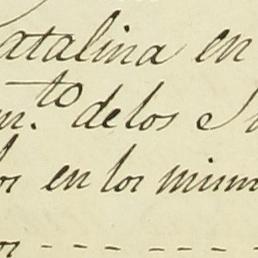 Catalina en
m.to de los S
os en los mism
os - - - - - - -